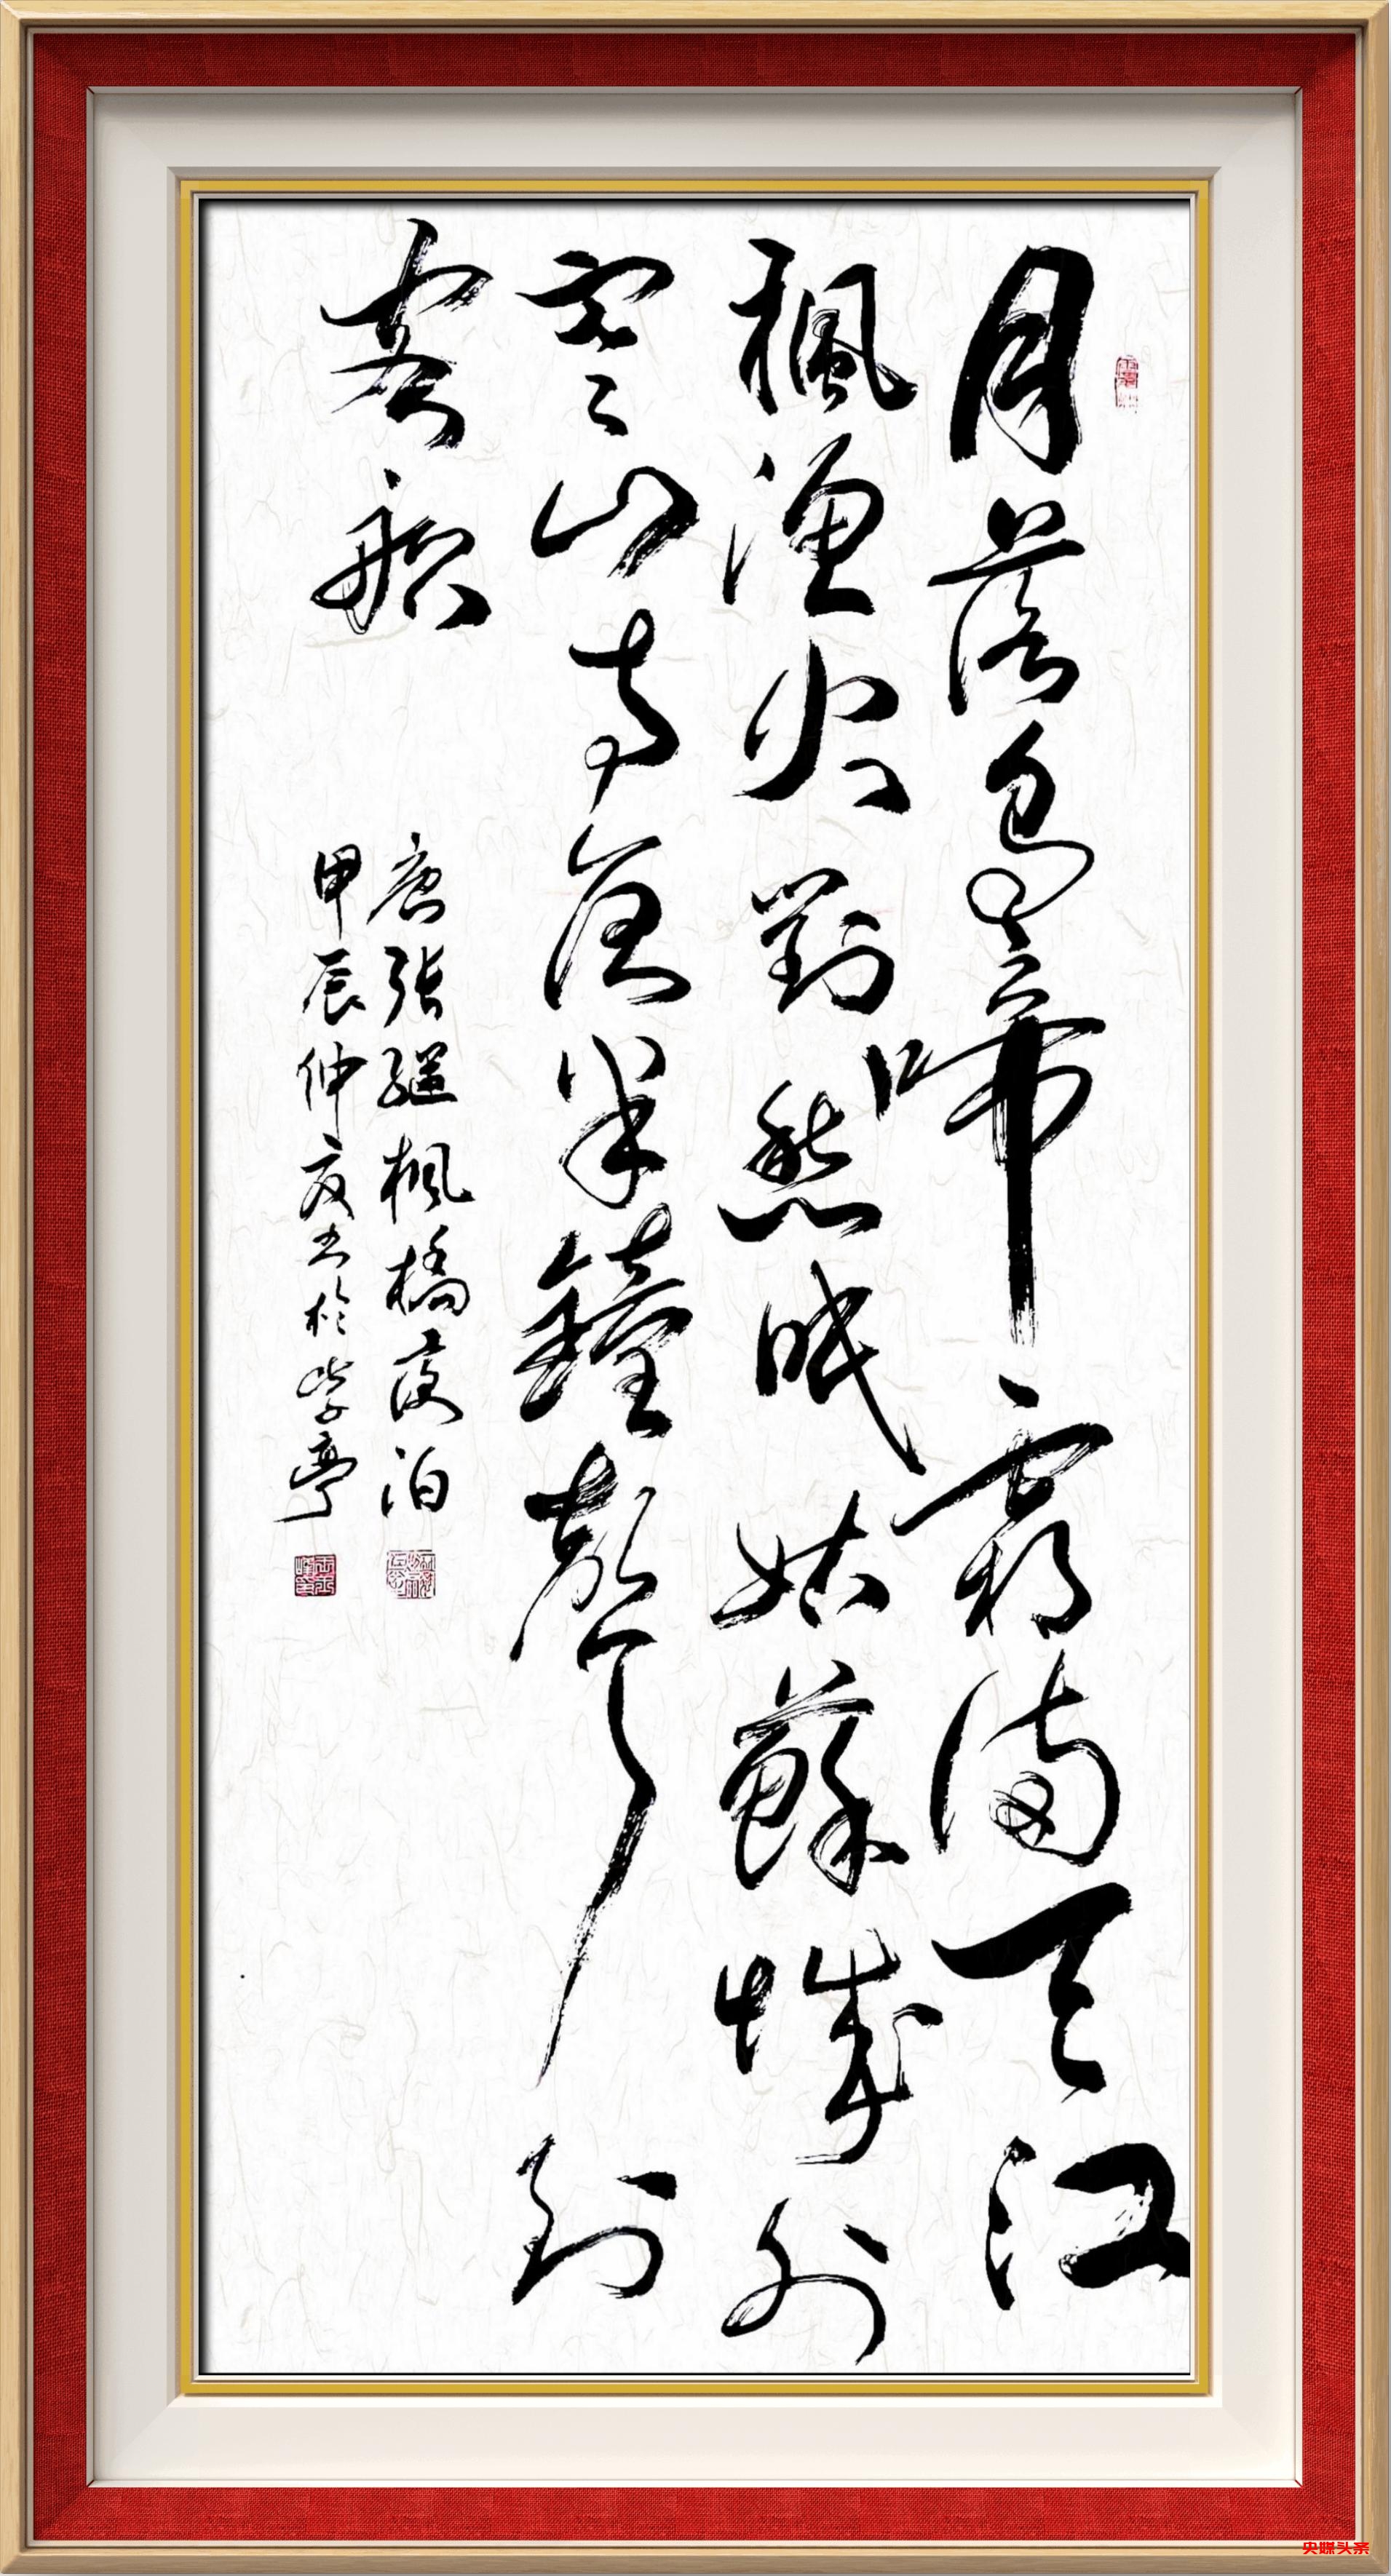 月落烏啼霜滿天江
楓漁火對愁眠姑蘇城外
寒山寺夜半鐘聲到
客船
唐張繼楓橋夜泊
甲辰仲夏书於亭
央媒头条